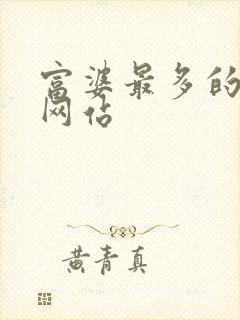 富婆最多的
网站
黄青真